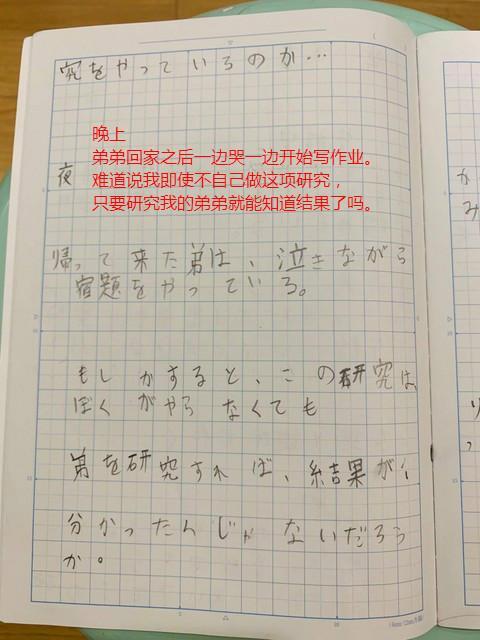 究をやっているのか…
晚上
弟弟回家之后一边哭一边开始写作业。
难道说我即使不自己做这项研究，
只要研究我的弟弟就能知道结果了吗。
夜
帰って来た弟は、泣きながら
宿題をやっている。
もしかすると、この研究は
ぼくがやらなくても
弟を研究すれば、結果が
分かったんじゃないだろう
か。